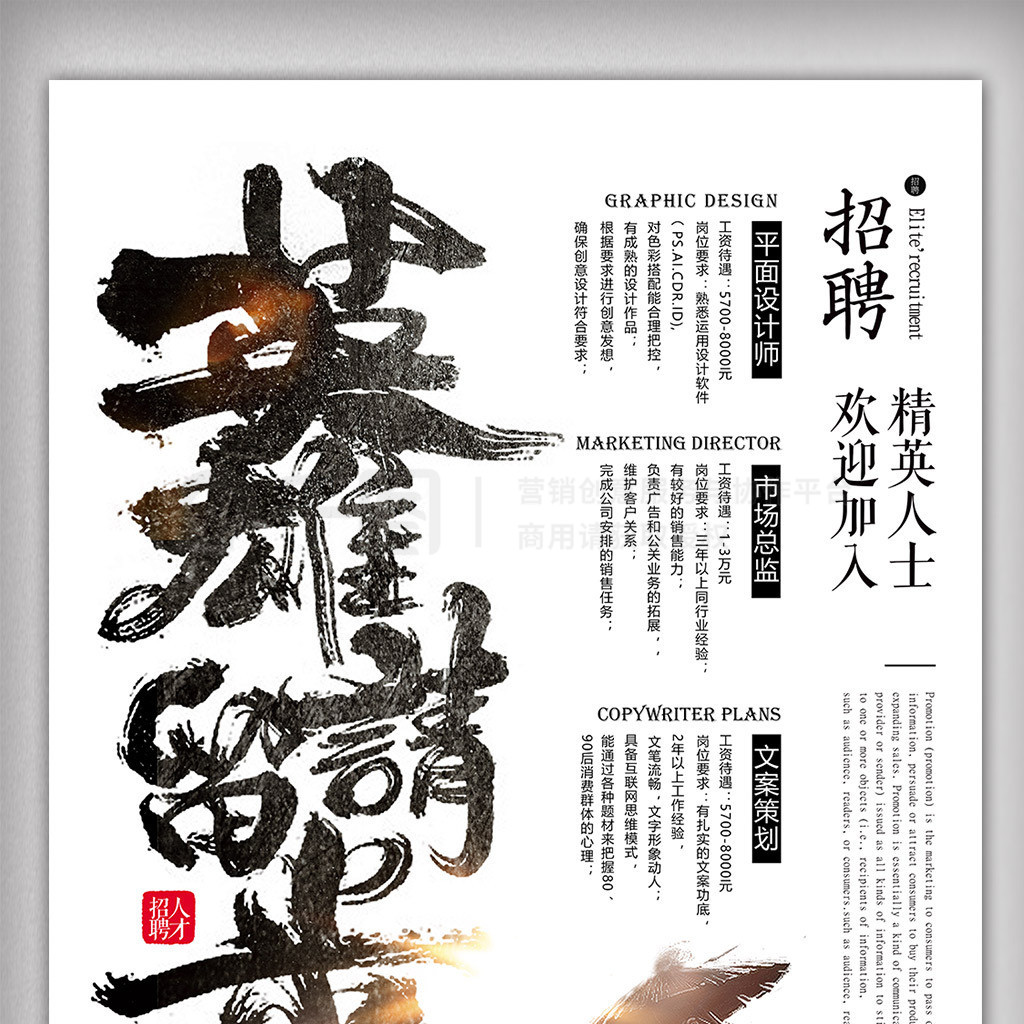 招聘
Elite'recruitment
招聘
精英人士
欢迎加入
Promotion (promotion) is the marketing to consumers to pass
information, persuade or attract consumers to buy their
expanding sales. Promotion is essentially a kind of
provider or sender) issued as all kinds of information to
to one or more objects (i.e., recipients of information.
such as audience, readers, or consumers.such as audience,
GRAPHIC DESIGN
平面设计师
工资待遇：5700-8000元
岗位要求：熟悉运用设计软件
(PS.AI.CDR.ID),
对色彩搭配能合理把控，
有成熟的设计作品；
根据要求进行创意发想，
确保创意设计符合要求；
MARKETING DIRECTOR
市场总监
工资待遇：1-3万元
岗位要求：三年以上同行业经验；
有较好的销售能力；
负责广告和公关业务的拓展，，
维护客户关系；
完成公司安排的销售任务；
COPYWRITER PLANS
文案策划
工资待遇：5700-8000元
岗位要求：：有扎实的文案功底，
2年以上工作经验，
文笔流畅，文字形象动人；
具备互联网思维模式，
能通过各种题材来把握80、
90后消费群体的心理；
英雄
請
留步
人才
招聘
营销创意服务与协作平台
商用请获取授权